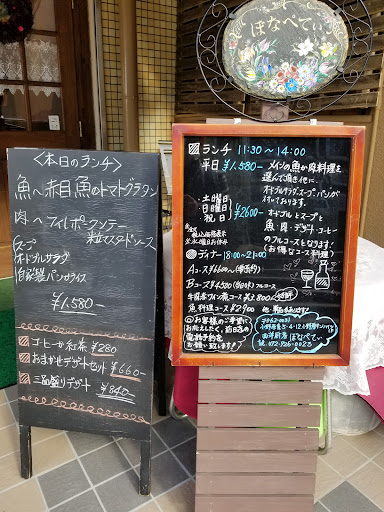 ぼなぺてぃ
<本日のランチ>
魚へ赤目魚のトマトグラタン
肉へフィレポークソテー
粒マスタードソース
スープ
オードブルサラダ
自家製パン
¥1,580-
コーヒーか紅茶 ¥280
おまかせデザートセット ¥660-
三品盛りデザート ¥840-
ランチ 11:30〜14:00
平日 ¥1,580- メインの魚か肉料理を
選んで頂き他に
オードブルサラダ、スープ、パンが
付いております。
土曜日
日曜日
祝日
¥2600-
オードブルとスープと
魚・肉・デザート・コーヒー
のフルコースとなります!
(お得なコース料理)
ディナー 18:00〜21:00
Aコース ¥6600〜
Bコース ¥4,580 フルコース
魚料理コース ¥2,900
お客様のご希望に
お応えしたく、前日迄の
電話予約を
お願い致します!
洋厨房 ぼなぺてぃ
072-926-0023